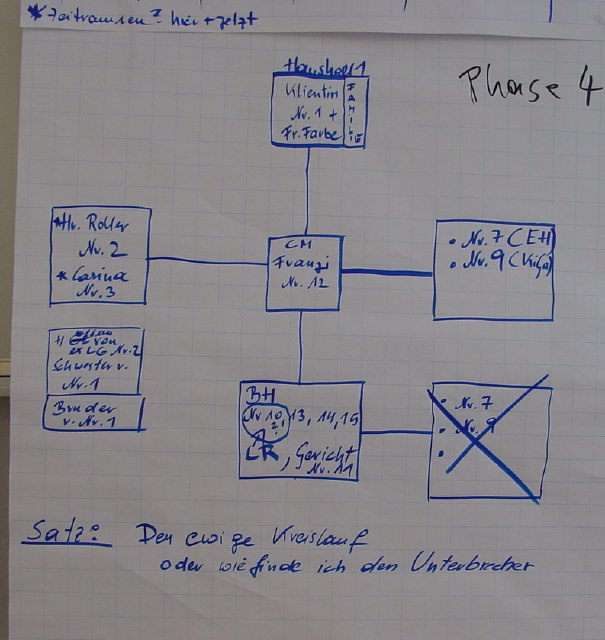 * Zeitraumen? hier + jetzt
Phase 4
Haushalt 1
Klientin
Nr. 1 +
Fr. Farbe
FAMILIE
* Hr. Roller
Nr. 2
* Carina
Nr. 3
CM
Franzi
Nr. 12
• Nr. 7 (EH)
• Nr. 9 (KiGa)
von
ex LG. Nr. 2
Schwester v.
Nr. 1
Bruder
v. Nr. 1
BH
Nr. 10, 13, 14, 15
2.
LR, Gericht
Nr. 11
• Nr. 7
• Nr. 9
•
Satz: Der ewige Kreislauf
oder wie finde ich den Unterbrecher